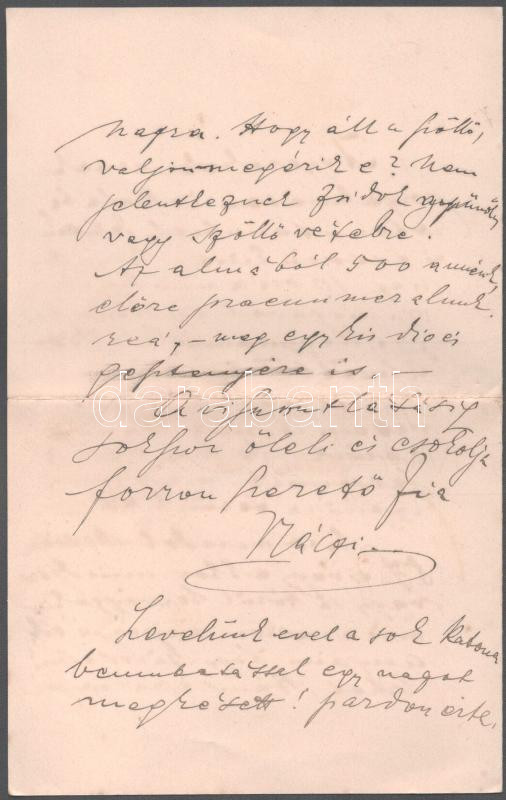 napra. Hogy áll a szőllő,
valjon megérik e? Nem
jelentkeznek zsidok
vagy szőllő vételre.
Az almából 500 a mienk,
előre praenumerálunk
reá, – meg egy kis dio és
gesztenyére is. –
A viszontlátásig
sokszor öleli és csokolja
forron szerető fia
Náczi
Levelünk evel a sok katona
bemutatással egy napot
megkésett! pardon érte.
darabanth